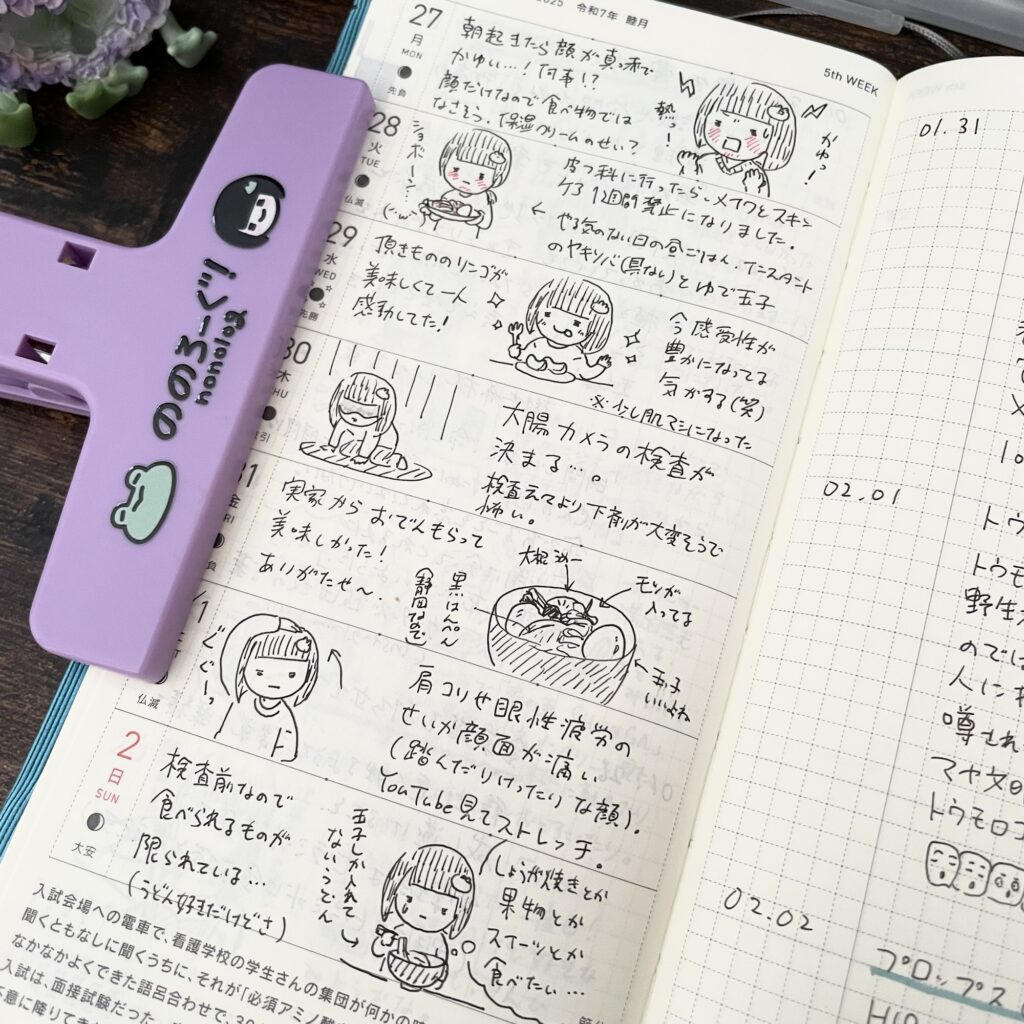 2025 令和7年 睦月
5th WEEK
27
月
MON
先負
朝起きたら顔が真っ赤で
かゆい…！何事!?
顔だけなので食べ物では
なさそう。保湿クリームのせい？
熱っ！
かゆっ！
28
火
TUE
仏滅
ショボーン…
(´・ω・`)
皮フ科に行ったら、メイクとスキン
ケア1週間禁止になりました。
← やる気のない日の昼ごはん、インスタント
のヤキソバ(具なし)とゆで玉子
29
水
WED
先勝
頂きもののリンゴが
美味しくて一人
感動してた！
今感受性が
豊かになってる
気がする(笑)
※少し肌マシになった
30
木
THU
大腸カメラの検査が
決まる…。
検査そのものより下剤が大変そうで
怖い。
31
金
FRI
実家からおでんもらって
美味しかった！
ありがたせ〜。
黒はんぺん
(静岡なので)
モツが
入ってる
玉子
いいよね
1
仏滅
ぐぐーっ
肩コリせ眼性疲労の
せいか顔面が痛い
(踏んだりけったりな顔)。
YouTube見てストレッチ。
2
日
SUN
大安
検査前なので
食べられるものが
限られている…
(うどん好きだけどさ)
玉子しか入れて
ないうどん
しょうが焼きとか
果物とか
スイーツとか
食べたい…
入試会場への電車で、看護学校の学生さんの集団が何かの
聞くともなしに聞くうちに、それが「必須アミノ酸
なかなかよくできた語呂合わせで、30
入試は、面接試験だった。
不意に降りてき
ののろーぐ！
nonolog
01.31
02.01
トウモ
野生
のでは
人に
噂され
マヤ文
トウモロコ
02.02
プロップス